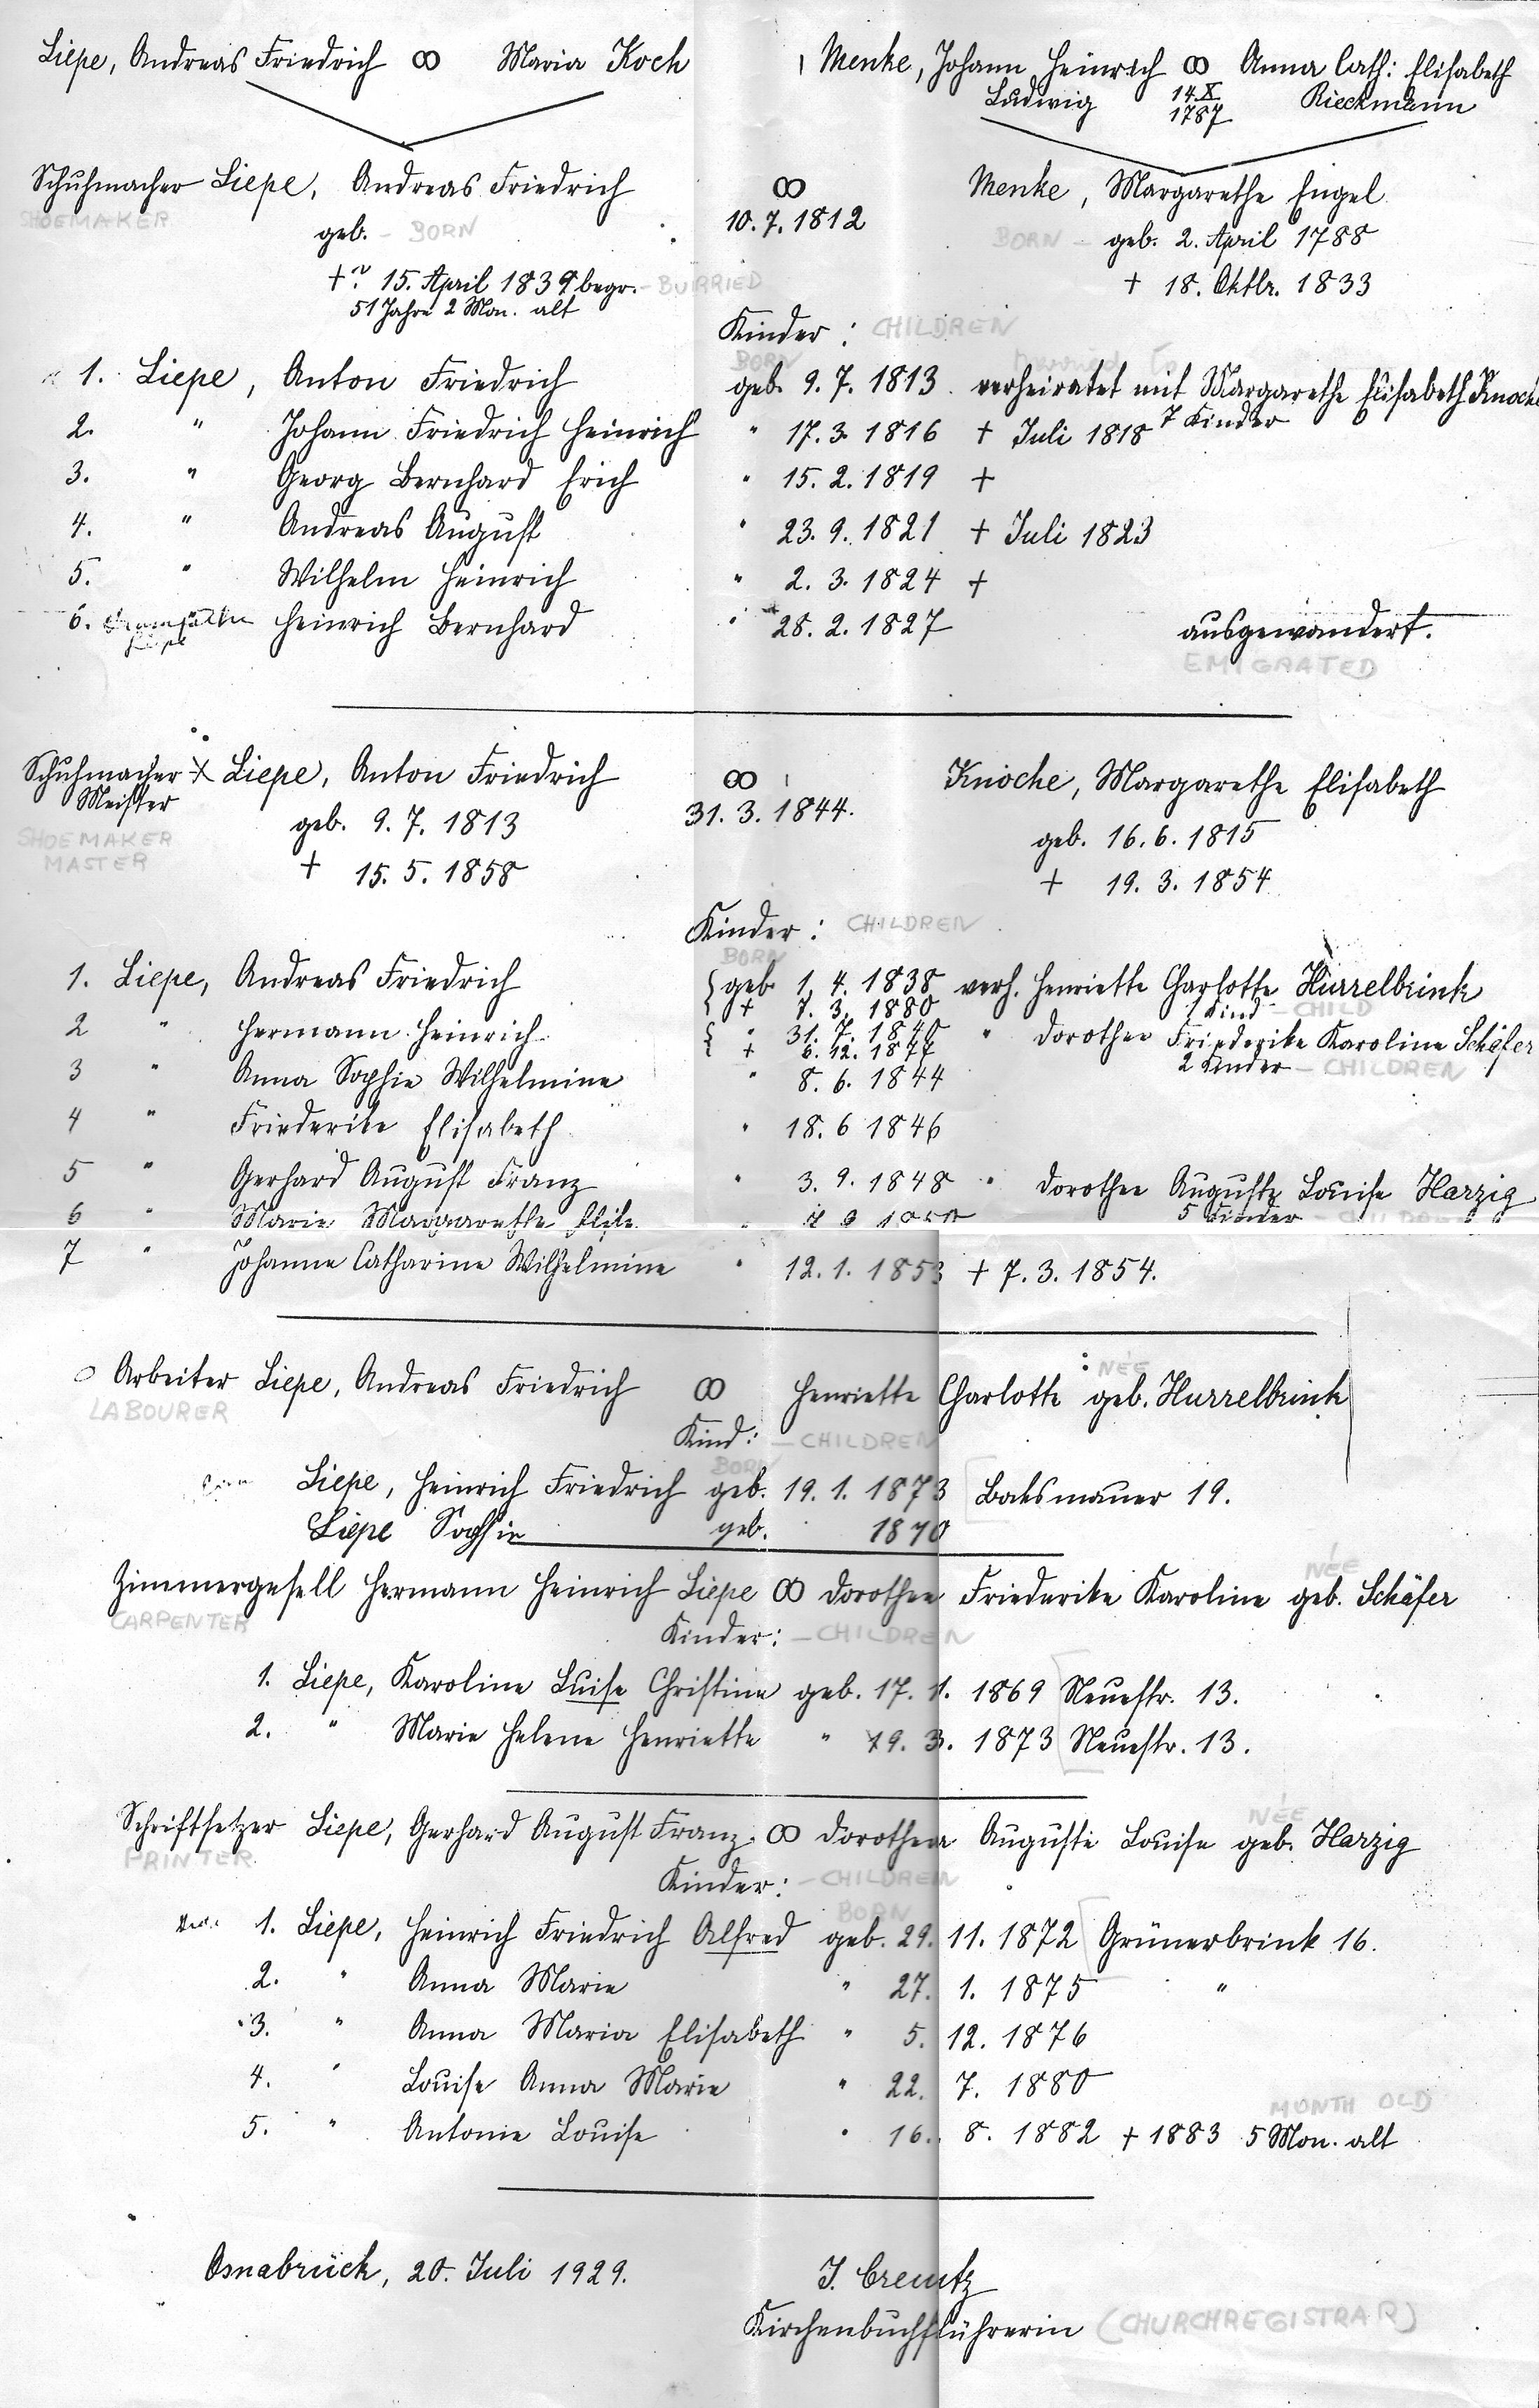 Liepe, Andreas Friedrich ∞ Maria Koch
Menke, Johann Heinrich ∞ Anna Cath: Elisabeth
Ludwig 14.X 1787 Rieckmann
Schuhmacher Liepe, Andreas Friedrich ∞ Menke, Margarethe Engel
SHOEMAKER
geb. - BORN 10.7.1812 BORN - geb. 2. April 1788
+ 15. April 1839 begr. - BURRIED + 18. Oktbr. 1833
51 Jahre 2 Mon. alt
Kinder: CHILDREN
BORN married to
1. Liepe, Anton Friedrich geb. 9.7.1813 verheiratet mit Margarethe Elisabeth Knoche
7 Kinder
2. " Johann Friedrich Heinrich " 17.3.1816 + Juli 1818
3. " Georg Bernhard Erich " 15.2.1819 +
4. " Andreas August " 23.9.1821 + Juli 1823
5. " Wilhelm Heinrich " 2.3.1824 +
6. Liepe Heinrich Bernhard " 28.2.1827 ausgewandert.
EMIGRATED
Schuhmacher Liepe, Anton Friedrich ∞ Knoche, Margarethe Elisabeth
Meister
SHOEMAKER
MASTER
geb. 9.7.1813 31.3.1844. geb. 16.6.1815
+ 15.5.1858 + 19.3.1854
Kinder: CHILDREN
BORN
1. Liepe, Andreas Friedrich { geb. 1.4.1838 verh. Henriette Charlotte Hurrelbrink
+ 7.3.1880 1 Kind - CHILD
2 " Hermann Heinrich { " 31.7.1840 " Dorothee Friederike Karoline Schäfer
+ 6.12.1877 2 Kinder - CHILDREN
3 " Anna Sophie Wilhelmine " 8.6.1844
4 " Friederike Elisabeth " 18.6 1846
5 " Gerhard August Franz " 3.9.1848 " Dorothee Auguste Louise Harzig
5 Kinder - CHILDREN
6 " Marie Margarethe
7 " Johanne Catharine Wilhelmine " 12.1.1853 + 7.3.1854.
NÉE
Arbeiter Liepe, Andreas Friedrich ∞ Henriette Charlotte geb. Hurrelbrink
LABOURER
Kind: - CHILDREN
BORN
Liepe, Heinrich Friedrich geb. 19.1.1873 Bocksmauer 19.
Liepe Sophie geb. 1870
NÉE
Zimmergesell Hermann Heinrich Liepe ∞ Dorothee Friederike Karoline geb. Schäfer
CARPENTER
Kinder: - CHILDREN
1. Liepe, Karoline Luise Christine geb. 17.1.1869 Neuestr. 13.
2. " Marie Helene Henriette " 19.3.1873 Neuestr. 13.
NÉE
Schriftsetzer Liepe, Gerhard August Franz ∞ Dorothea Auguste Louise geb. Harzig
PRINTER
Kinder: - CHILDREN
BORN
1. Liepe, Heinrich Friedrich Alfred geb. 29.11.1872 Grünerbrink 16.
2. " Anna Marie " 27.1.1875 "
3. " Anna Maria Elisabeth " 5.12.1876
4. " Louise Anna Marie " 22.7.1880
MONTH OLD
5. " Antonie Louise " 16.8.1882 + 1883 5 Mon. alt
Osnabrück, 20. Juli 1929.
J. Creutz
Kirchenbuchführerin (CHURCHREGISTRAR)